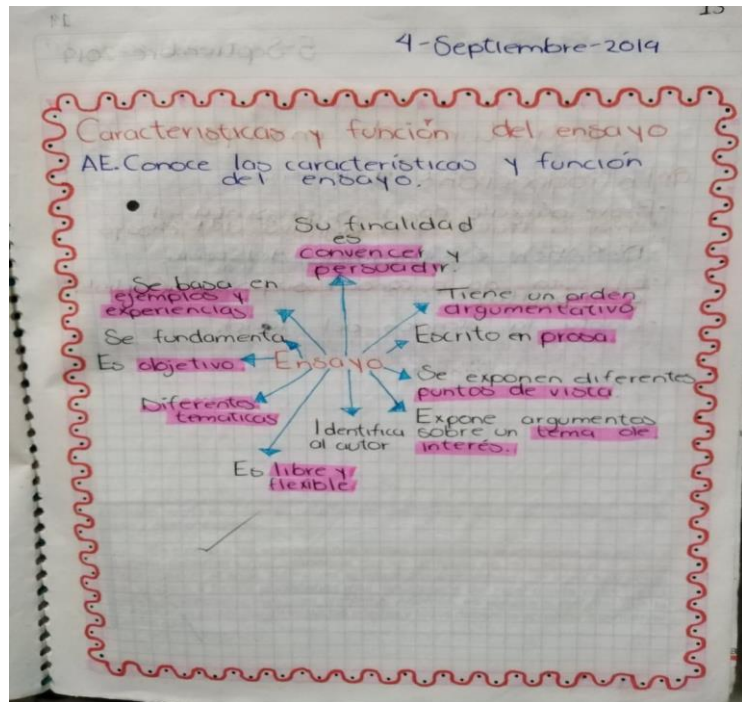 13
4-Septiembre-2019
Características y función del ensayo
AE. Conoce las características y función
del ensayo.
Su finalidad
es
convencer y
persuadir.
Se basa en
ejemplos y
experiencias
Tiene un orden
argumentativo
Se fundamenta
Escrito en prosa.
Es objetivo.
Ensayo
Se exponen diferentes
puntos de vista
Diferentes
temáticas
Identifica
al autor
Expone argumentos
sobre un tema de
interés.
Es libre y
flexible